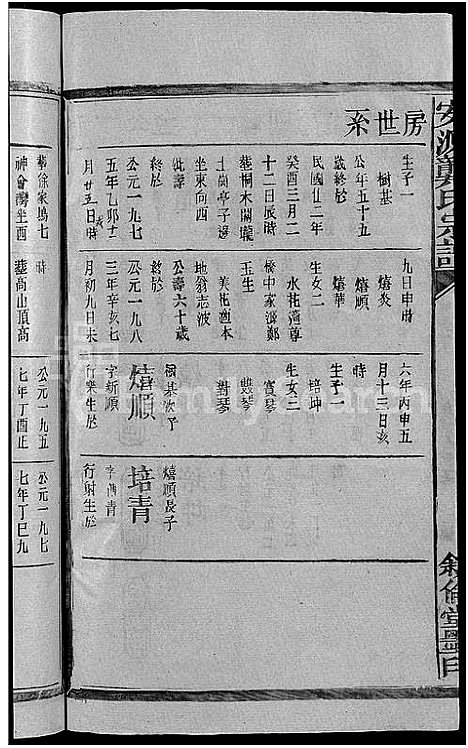 房世系
生子一
樹基
公年五十五
歲終於
民國廿二年
癸酉三月二
十二日辰時
葬桐木關龍
土崗亭子邊
坐東向西
終於
公元一九七
五年乙卯十二
月廿五日時
葬徐家塢七
神會灣坐酉
九日申時
熺炎
熺順
熺華
生女二
水花適鄭
橋中家源鄭
玉生
美花適本
地翁志波
公壽六十歲
終於
公元一九八
三年辛亥七
月初九日未
時
葬高山頂高
六年丙申五
月十三日亥
時
生子一
培坤
生女三
寶琴
雙琴
對琴
樹基次子
熺順
字新順
行樂生於
公元一九五
七年丁酉正
熺順長子
培青
字酉青
行射生於
公元一九七
七年丁巳九
氏宗譜
敘倫堂